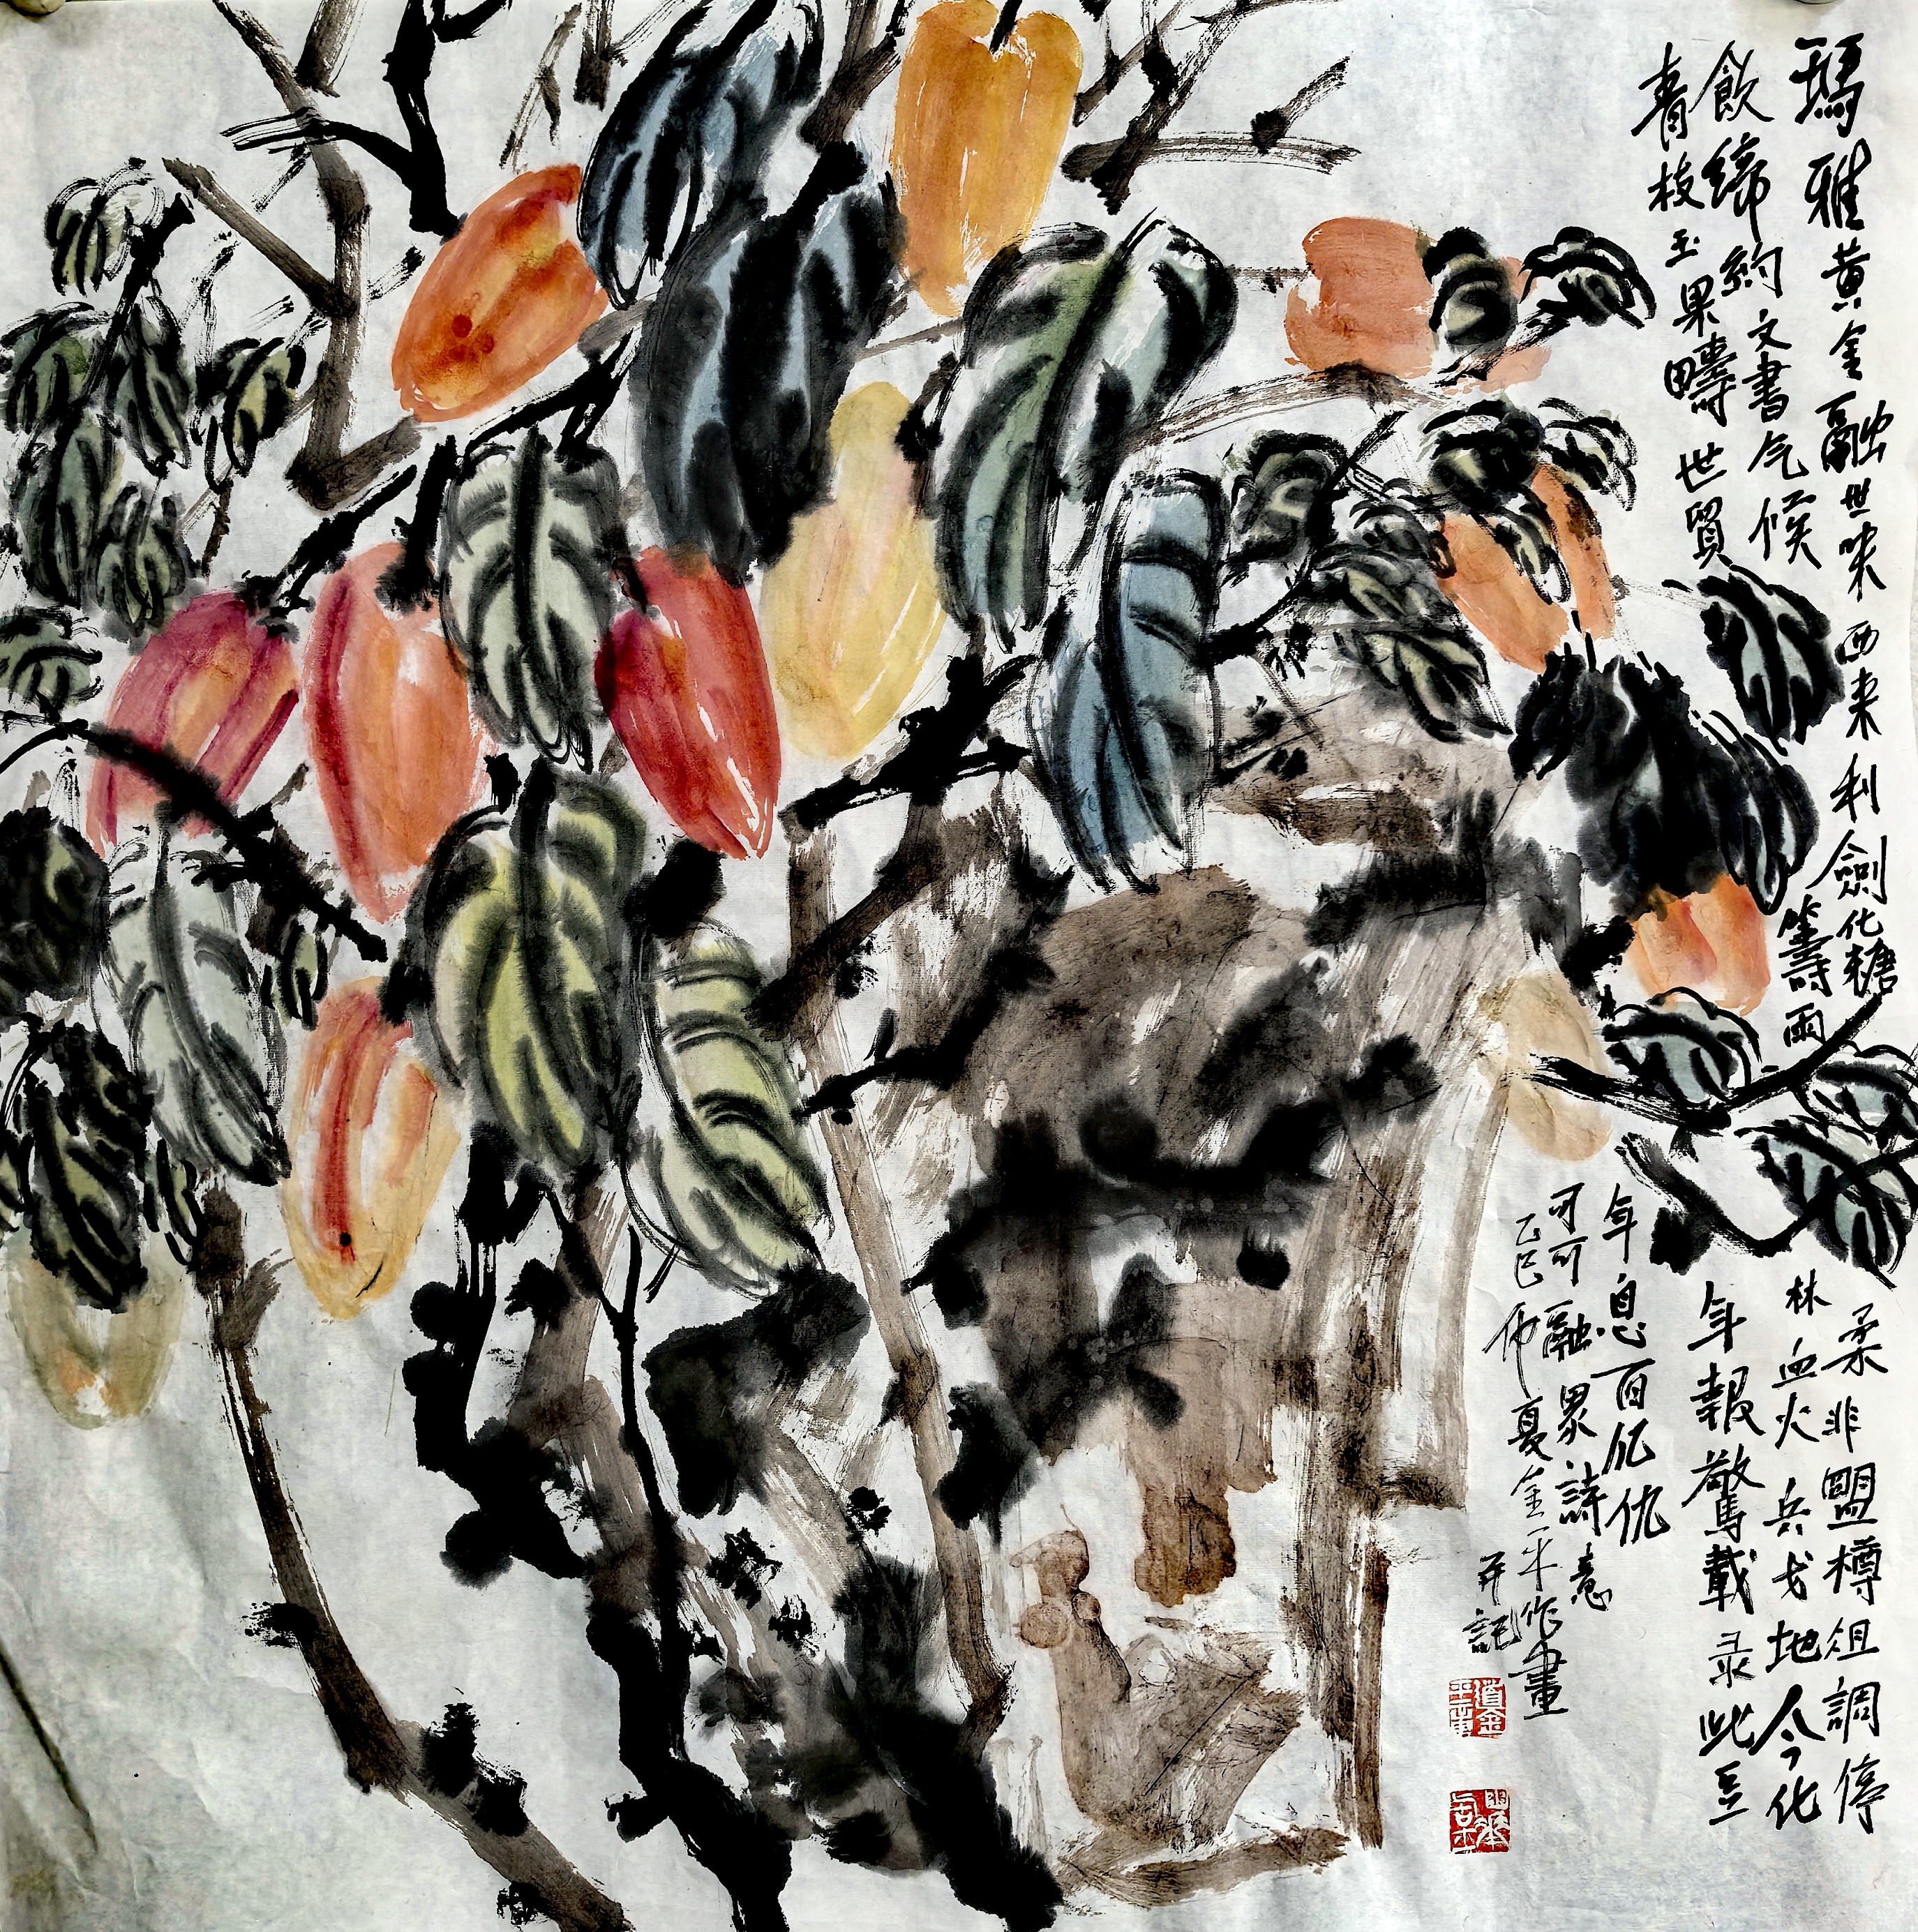 瑪雅黃金融世味西来利劍化糖柔非盟樽俎調停
飲締約文書气候籌雨林血火兵戈地今化
青枝玉果疇世貿年報驚載录此豆
年息百亿仇
可可融累詩意
乙巳仲夏金平作畫
并記